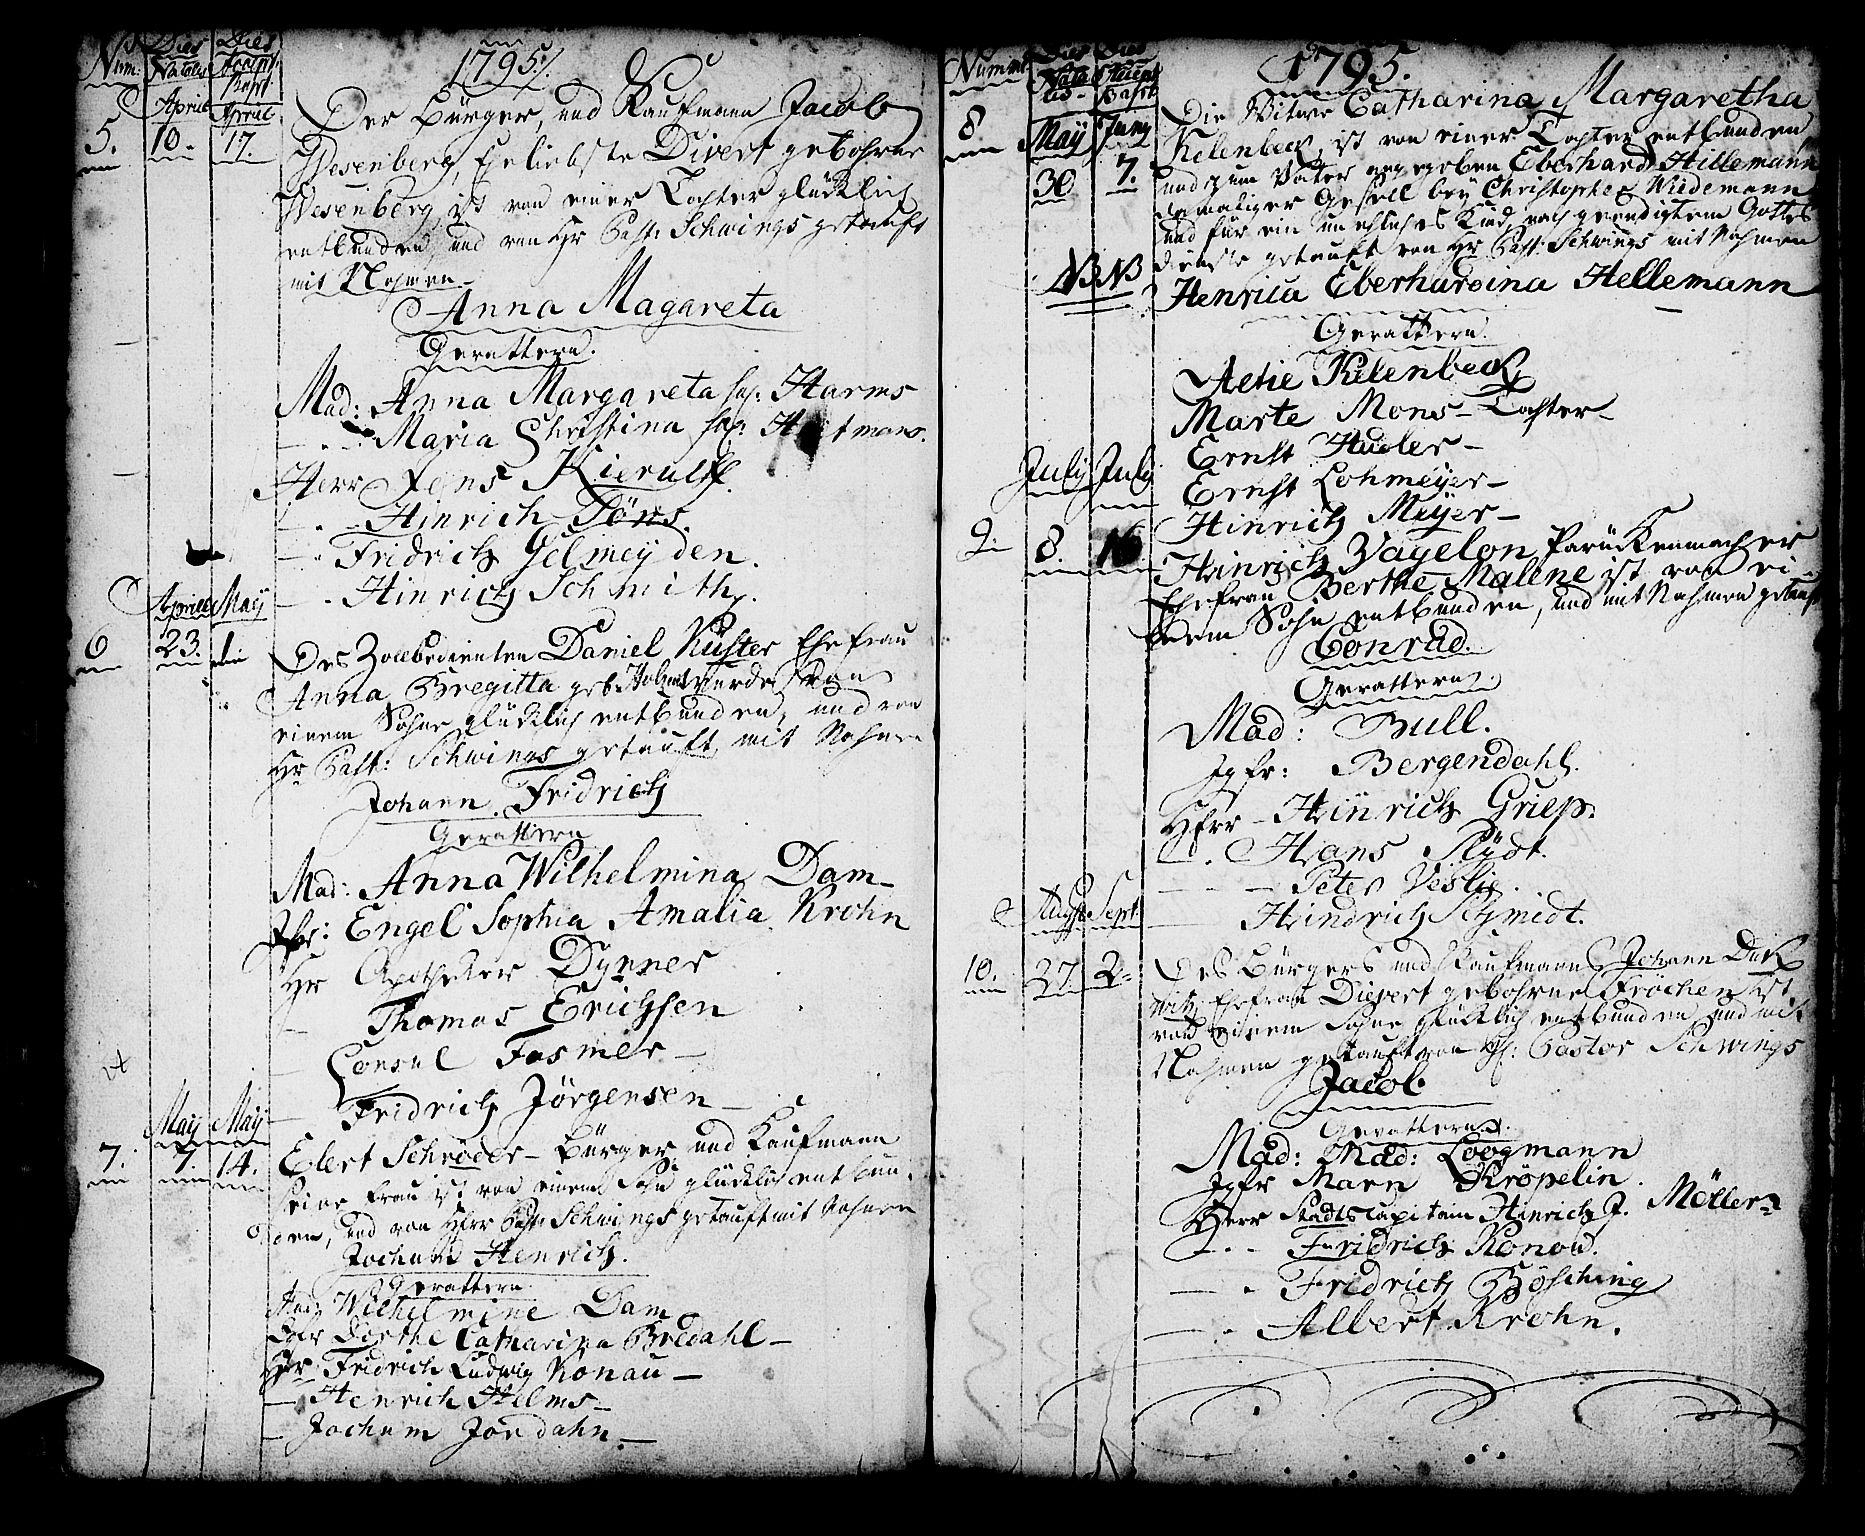 Num: Dies Natalis Dies Accept: Bapt
1795.
April April
5. 10. 17.
Der Bürger, und Kaufmann Jacob
Wesenberg, Eheliebste Divert gebohrne
Wesenberg ist von einer Tochter glücklich
entbunden, und von Hr Past: Schwings getauft
mit Nahmen
Anna Magareta
Gevattern.
Mad: Anna Margareta sel. Harms
— Maria Christina sel. Hartmans.
Herr Jens Kierulff.
— Hinrich Töns.
— Fridrich Gelmeÿden.
— Hinrich Schmith.
Aprill Maÿ
6 23. 1
Des Zollbedienten Daniel Küster Ehefrau
Anna Bregitta geb: von
einem Sohne glücklich entbunden, und von
Hr Past: Schwings getauft, mit Nahmen
Johann Fridrich
Gevattern
Mad: Anna Wilhelmina Dam—
Jfr: Engel Sophia Amalia Krohn
Hr Apotheker Dynner
— Thomas Erichsen
— Consul Fasmer—
— Fridrich Jörgensen—
Maÿ Maÿ
7. 7. 14.
Elert Schröder— Bürger und Kaufmann
seine Frau ist von einem Sohn glücklich entbun
den, und von Herr Past: Schwings getauft mit Nahmen
Jochum Henrich.
Gevattern
Wilhelmine Dam
Jgfr Dorthe Catharina Bredahl—
Hr Fridrich Ludwig Konau—
— Henrich Helms—
— Jochum Jordahn.—
Numme Dies Natalis Dies Accept Bapt:
1795.
8 Maÿ Juny
30 7.
Die Witwe Catharina Margaretha
Kelenbeck, ist von einer Tochter entbunden,
und zum Vater angegeben Eberhard Hillemann
damaliger Gesell beÿ Christopher Wiedemann
und für ein unehliches Kind, nach geendigtem Gottes
dienste getauft von Hr Past: Schwings mit Nahmen
NB NB
Henrica Eberhardina Hellemann
Gevattern.
Aetie Kelenbeck
Marte Mons— Tochter—
Ernst Hudler—
Ernst Lohmeÿer—
Hinrich Meÿer—
July July
9. 8. 16
Heinrich Vagelon Parückenmacher
Ehefrau Berthe Malene ist von ei—
nem Sohn entbunden, und mit Nahmen getauft
Conrad.
Gevattern.
Mad: Bull.
Jgfr: Bergendahl.
Herr— Heinrich Griep.
— Hans Plÿdt.
— Peter Veslie.
— Heindrich Schmedt.
Augst Sept.
10. 27. 2.
Des Bürgers und Kaufmann Johann Dirk
Witz, Ehefrau Dievert gebohrne Fröchen ist
von einem Sohne glücklich entbunden und mit
Nahmen getauft von Hr: Pastor Schwings
Jacob.
Gevattern.
Mad: Mad: Loogmann
Jgfr Maren Kröpelin.
Herr Stadts Capitain Hinrich J. Möller
— Fridrich Konow.
— Fridrich Bösching
— Albert Krohn.